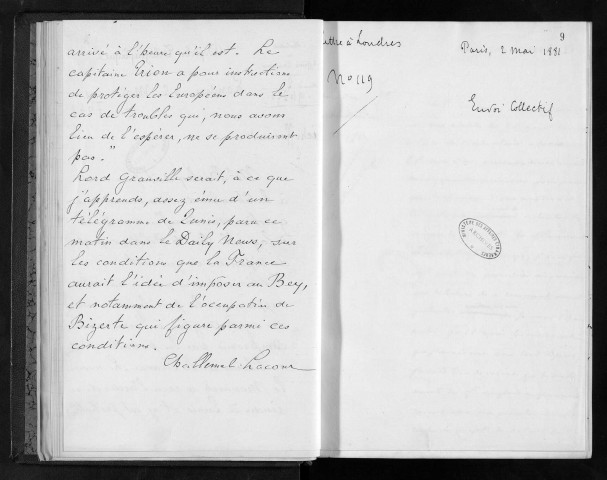 arrivé à l'heure qu'il est. Le
capitaine Erion a pour instructions
de protéger les Européens dans le
cas de troubles qui, nous avons
lieu de l'espérer, ne se produiront
pas."
Lord Granville serait, à ce que
j'apprends, assez ému d'un
télégramme de Tunis, paru ce
matin dans le Daily News, sur
les conditions que la France
aurait l'idée d'imposer au Bey,
et notamment de l'occupation de
Bizerte qui figure parmi ces
conditions.
Challemel Lacour
9
ttre à Londres
Paris, 2 mai 1881
No 119
Envoi Collectif